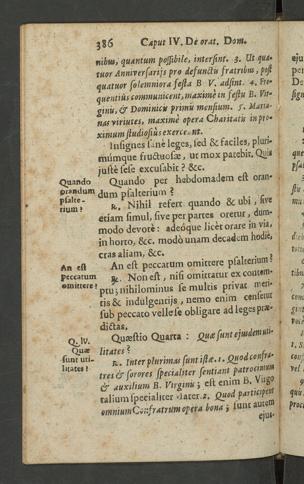 386 Caput IV. De orat. Dom.
nibus, quantum possibile, intersint. 3. Ut qua-
tuor Anniversarijs pro defunctis fratribus, post
quatuor solemniora festa B V. adsint. 4. Fre-
quentiùs communicent, maximè in festis B. Vir-
ginis, & Dominicis primis mensium. 5. Maria-
nas virtutes, maximè opera Charitatis in pro-
ximum studiosiùs exerceant.
Insignes sanè leges, sed & faciles, pluri-
mùmque fructuosæ, ut mox patebit. Quis
justè sese excusabit? &c.
Quando orandum psalte-rium?
Quando per hebdomadem est oran-
dum psalterium?
℞. Nihil refert quando & ubi, sive
etiam simul, sive per partes oretur, dum-
modo devotè: adeóque licèt orare in via,
in horto, &c. modò unam decadem hodiè,
cras aliam, &c.
An est peccatum omittere?
An est peccatum omittere psalterium?
℞. Non est, nisi omittatur ex contem-
ptu; nihilominus se multis privat meri-
tis & indulgentijs, nemo enim censetur
sub peccato vellese obligare ad leges præ-
dictas.
Q. IV. Quæ sunt uti-litates?
Quæstio Quarta: Quæ sunt ejusdem uti-
litates?
℞. Inter plurimas sunt istæ. 1. Quod confra-
tres & sorores specialiter sentiant patrocinium
& auxilium B. Virginis; est enim B. Virgo
talium specialiter Mater. 2. Quod participent
omnium Confratrum opera bona; sunt autem
ejus-